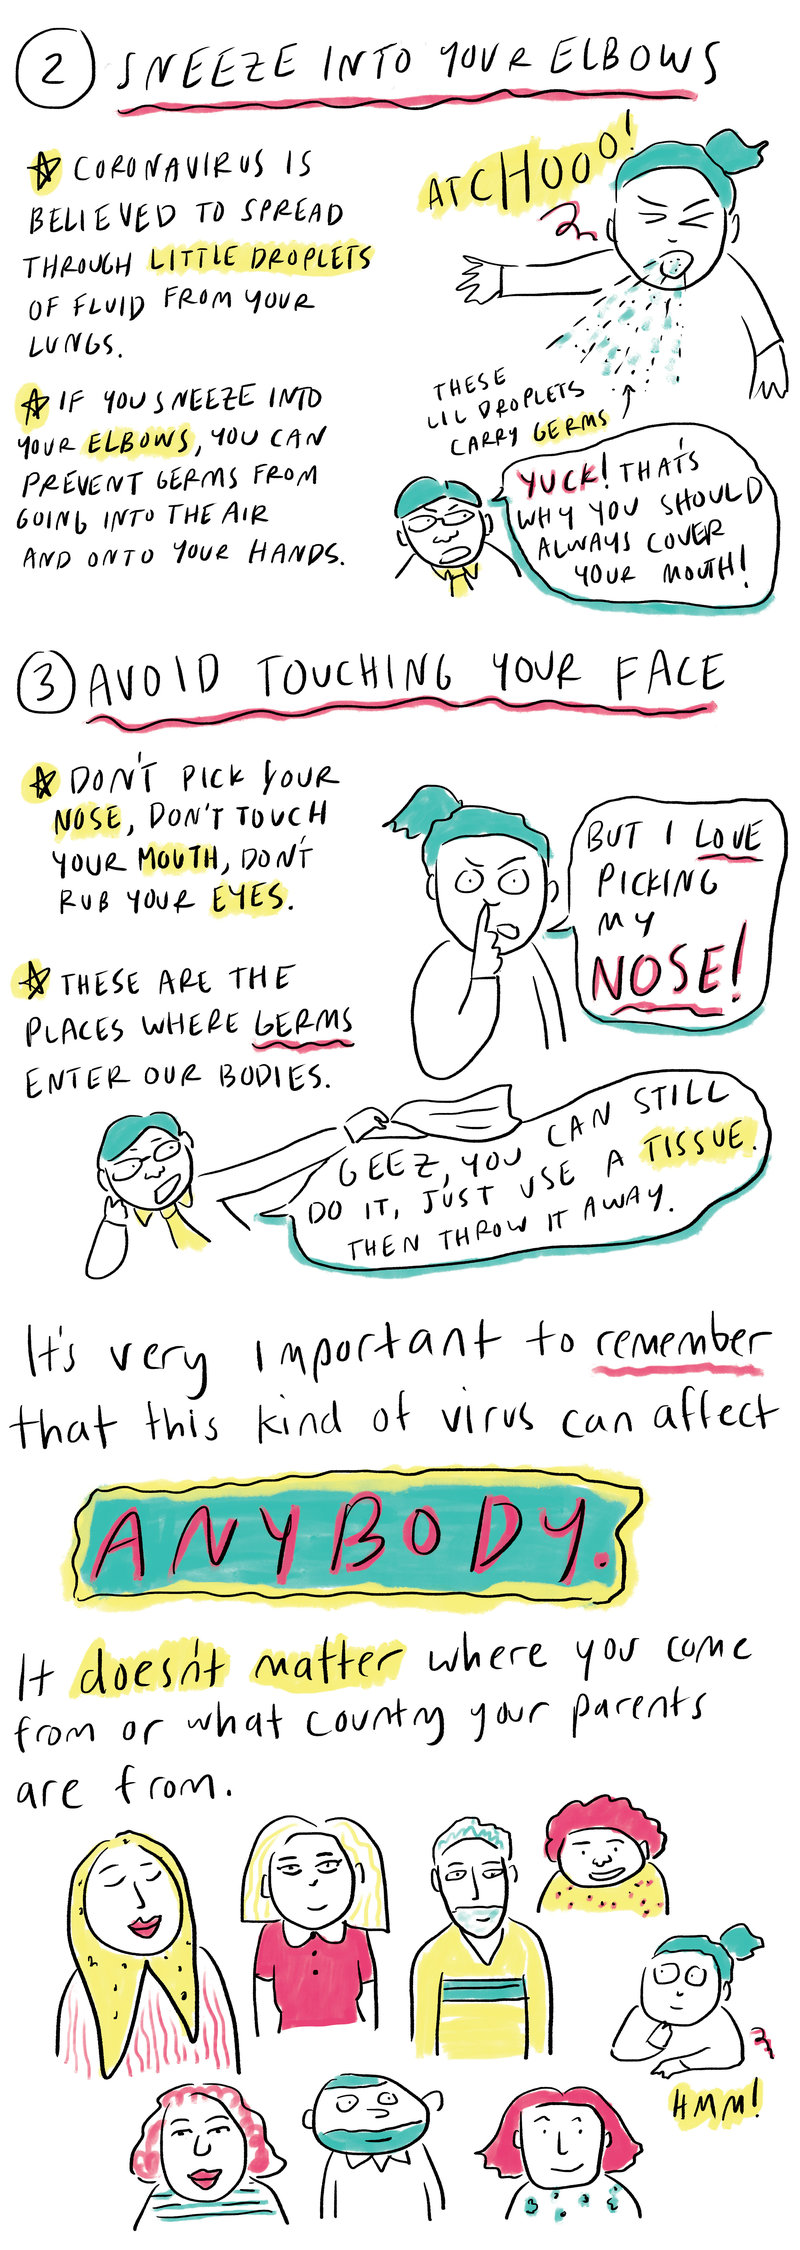 2 SNEEZE INTO YOUR ELBOWS
CORONAVIRUS IS
BELIEVED TO SPREAD
THROUGH LITTLE DROPLETS
OF FLUID FROM YOUR
LUNGS.
ATCHOOO!
IF YOU SNEEZE INTO
YOUR ELBOWS, YOU CAN
PREVENT GERMS FROM
GOING INTO THE AIR
AND ONTO YOUR HANDS.
THESE
LIL DROPLETS
CARRY GERMS
YUCK! THAT'S
WHY YOU SHOULD
ALWAYS COVER
YOUR MOUTH!
3 AVOID TOUCHING YOUR FACE
DON'T PICK YOUR
NOSE, DON'T TOUCH
YOUR MOUTH, DON'T
RUB YOUR EYES.
BUT I LOVE
PICKING
MY
NOSE!
THESE ARE THE
PLACES WHERE GERMS
ENTER OUR BODIES.
GEEZ, YOU CAN STILL
DO IT, JUST USE A TISSUE.
THEN THROW IT AWAY.
It's very important to remember
that this kind of virus can affect
ANYBODY.
It doesn't matter where you come
from or what country your parents
are from.
HMM!